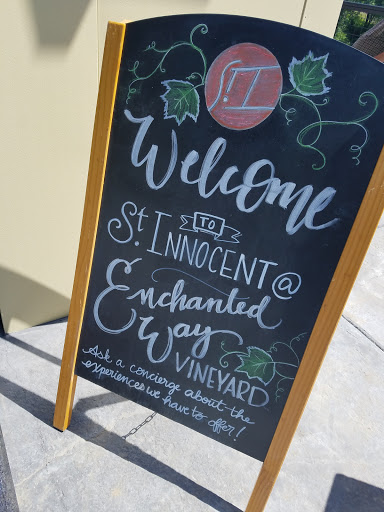 St. I
Welcome
TO
St. INNOCENT @
Enchanted
Way
VINEYARD
Ask a concierge about the
experiences we have to offer!